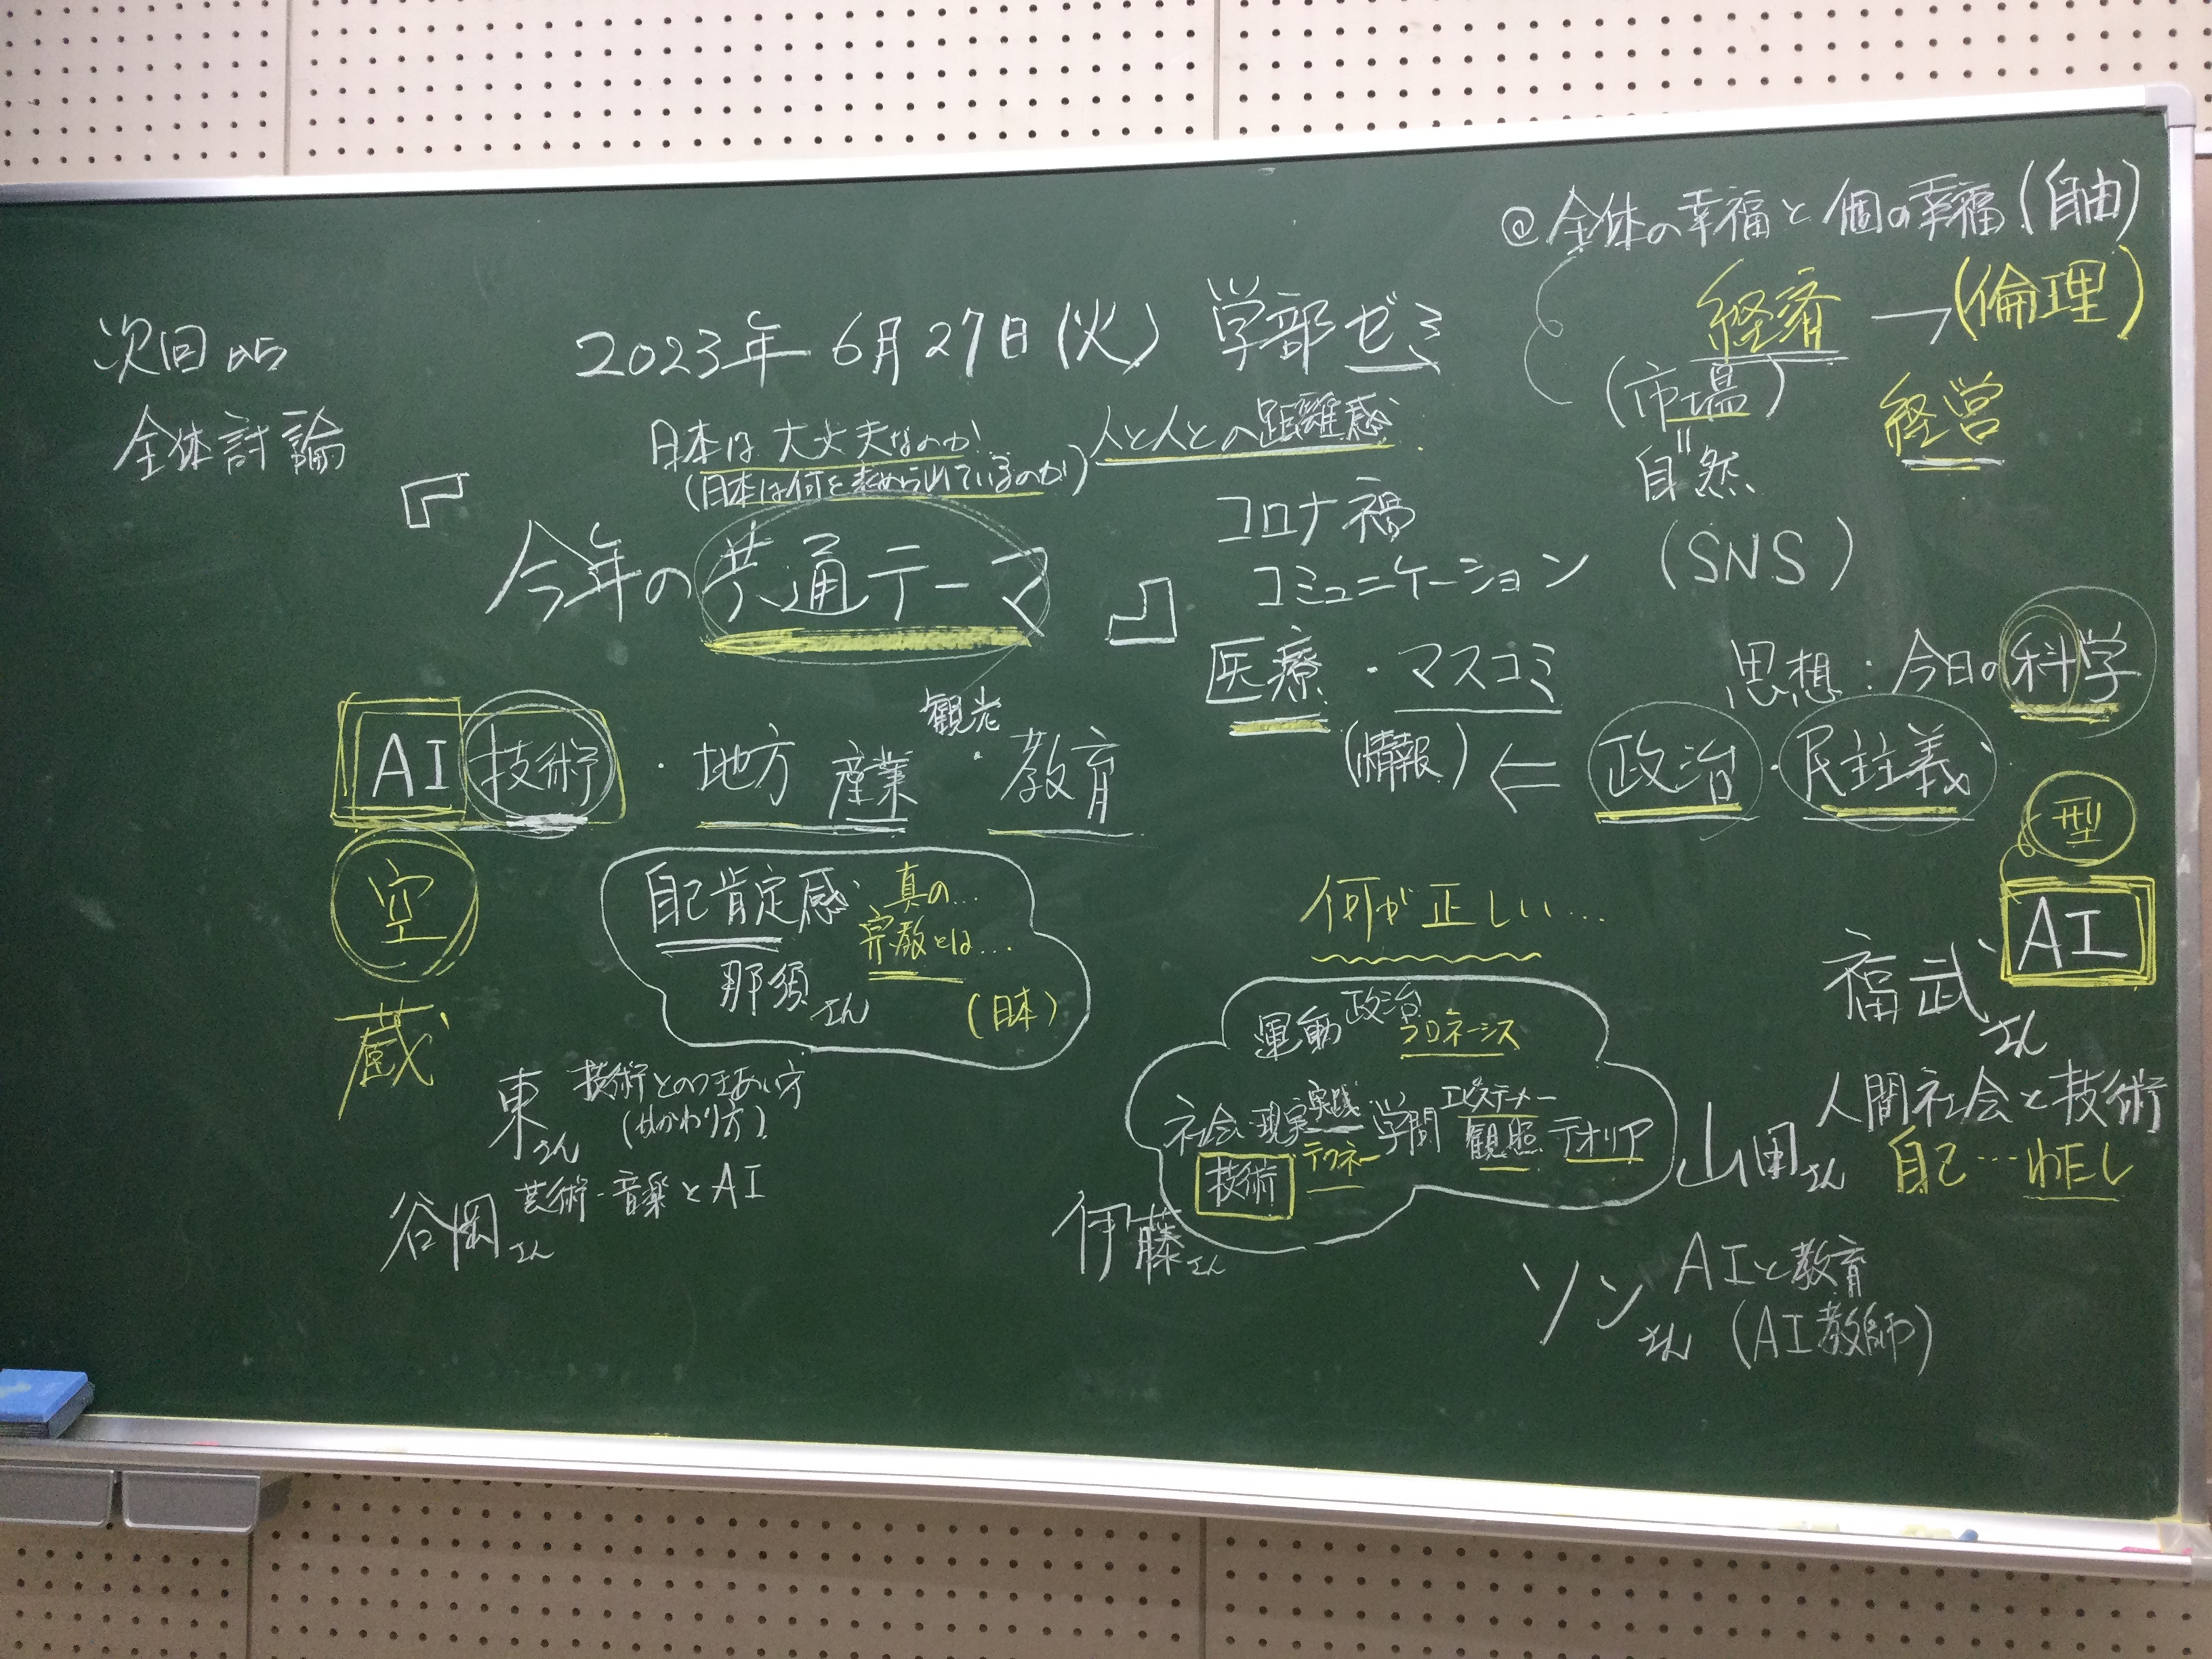 @ 全体の幸福と個の幸福(自由)
経済 → (倫理)
(市場) 経営
॥
自然
(SNS)
次回から
全体討論
2023年 6月27日(火) 学部ゼミ
日本は大丈夫なのか! 人と人との距離感
(日本は何を求められているのか)
「今年の共通テーマ」
コロナ禍
コミュニケーション
医療・マスコミ
(情報) ⇐ 政治・民主義
思想:今日の科学
型
AI
AI技術・地方産業・教育
観光
空
蔵
自己肯定感 真の…
宗教とは…
那須さん (日本)
何が正しい…
運動 政治 フロネーシス
社会 現実 実践 学問 エピステーメー
技術 テクネー 観照 テオリア
伊藤さん
福武さん
人間社会と技術
山田さん 自己…わたし
東さん 技術とのつきあい方
(かかわり方)
谷岡さん 芸術・音楽とAI
ソンさん AIと教育
(AI教師)